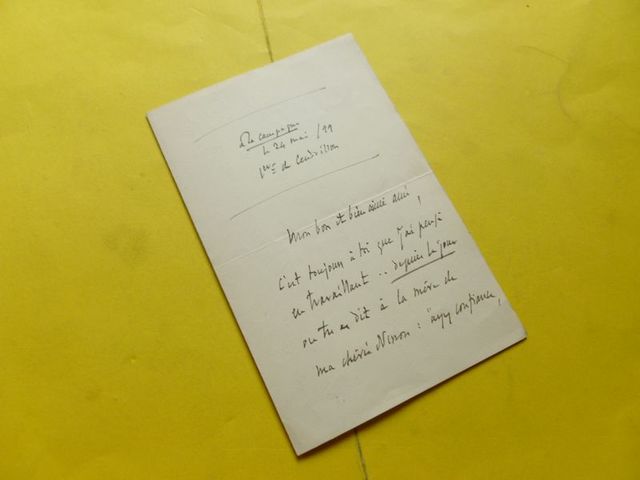 à la campagne
le 24 mai /99
1ère de Cendrillon
Mon bon et bien aimé ami,
C'est toujours à toi que j'ai pensé
en travaillant .. depuis le jour
où tu as dit à la mère de
ma chérie Ninon : "ayez confiance,